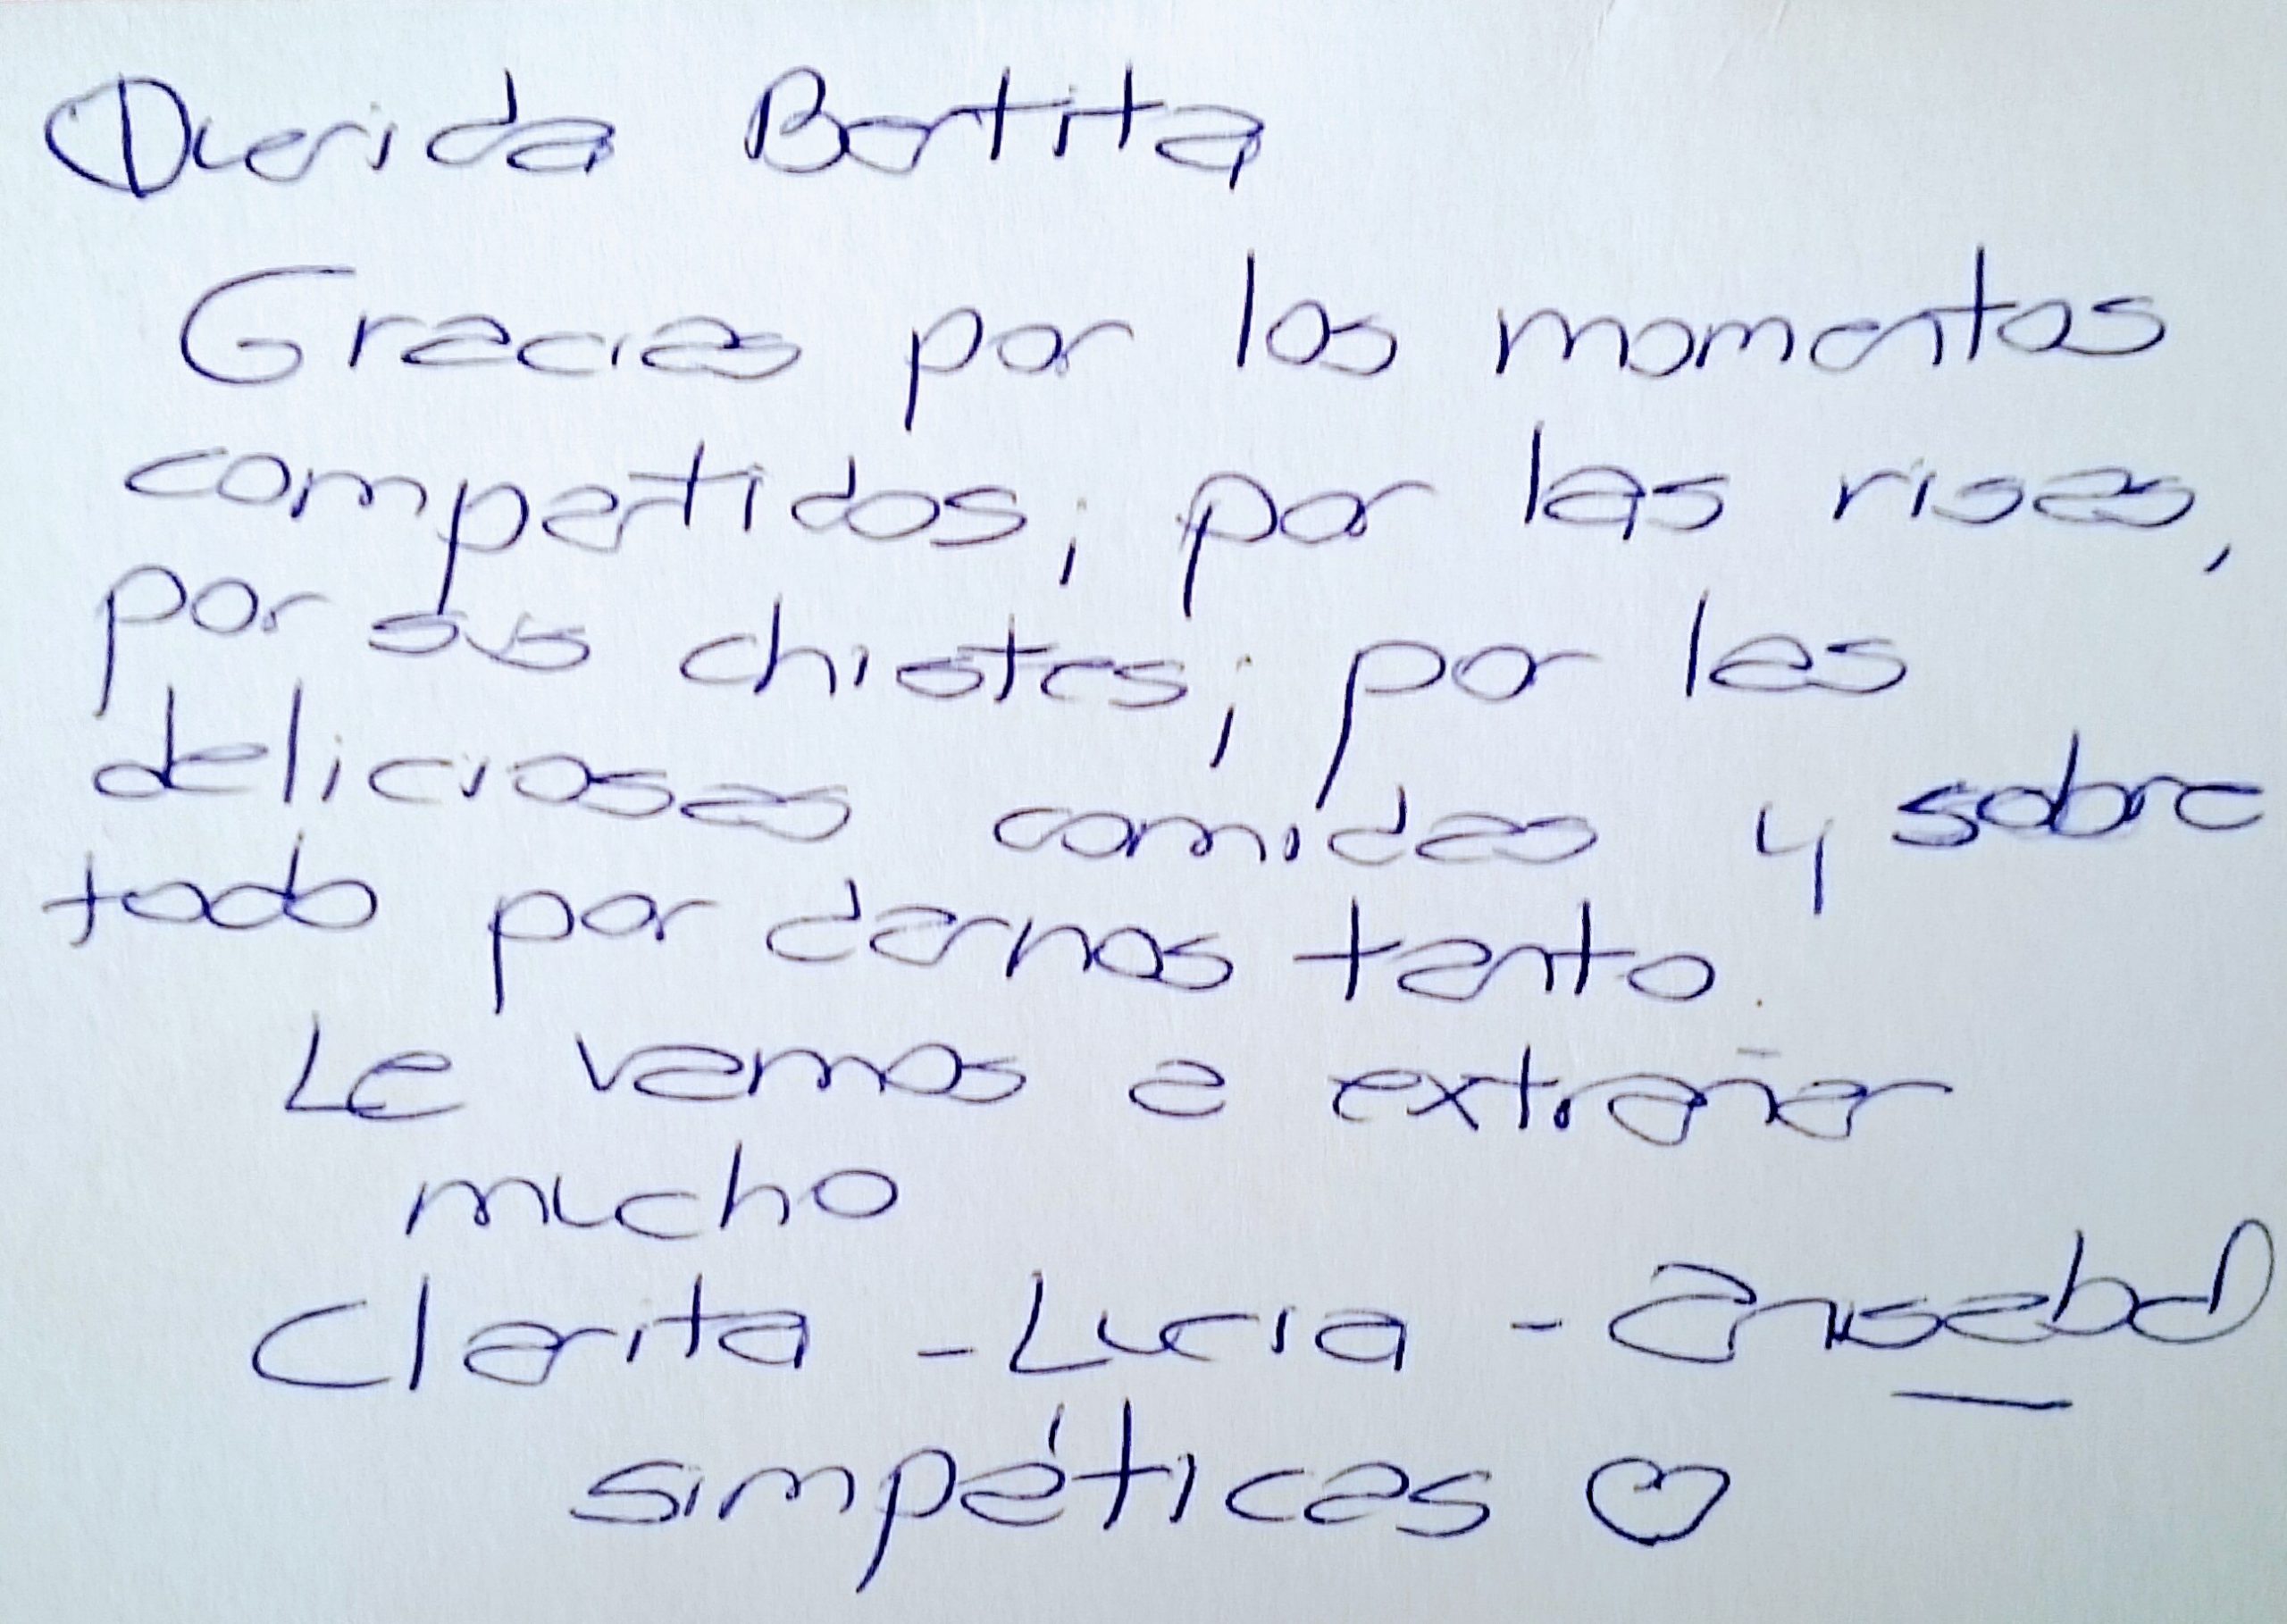 Querida Bertita
Gracias por los momentos
compartidos; por las risas,
por sus chistes; por las
deliciosas comidas y sobre
todo por darnos tanto.
Le vamos a extrañar
mucho
Clarita - Lucia -
simpáticas ♡